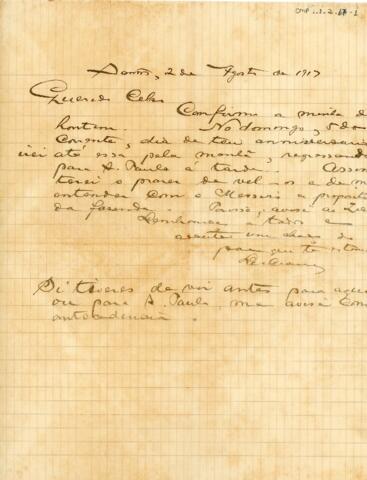 2 de Agosto de 1917
Querido
Confirmo a minha de
hontem. No domingo, 5 do
corrente, dia de teu anniversario
irei até essa pela manhã, regressando
para S. Paulo á tarde. Assim
terei o prazer de vel-os e de me
entender com o Messias a proposito
da fazenda.
Lembranças a todos e
acceite um abraço do
pae que te estima
Si tiveres de vir antes para aqui
ou para S. Paulo, me avise com
antecedencia.